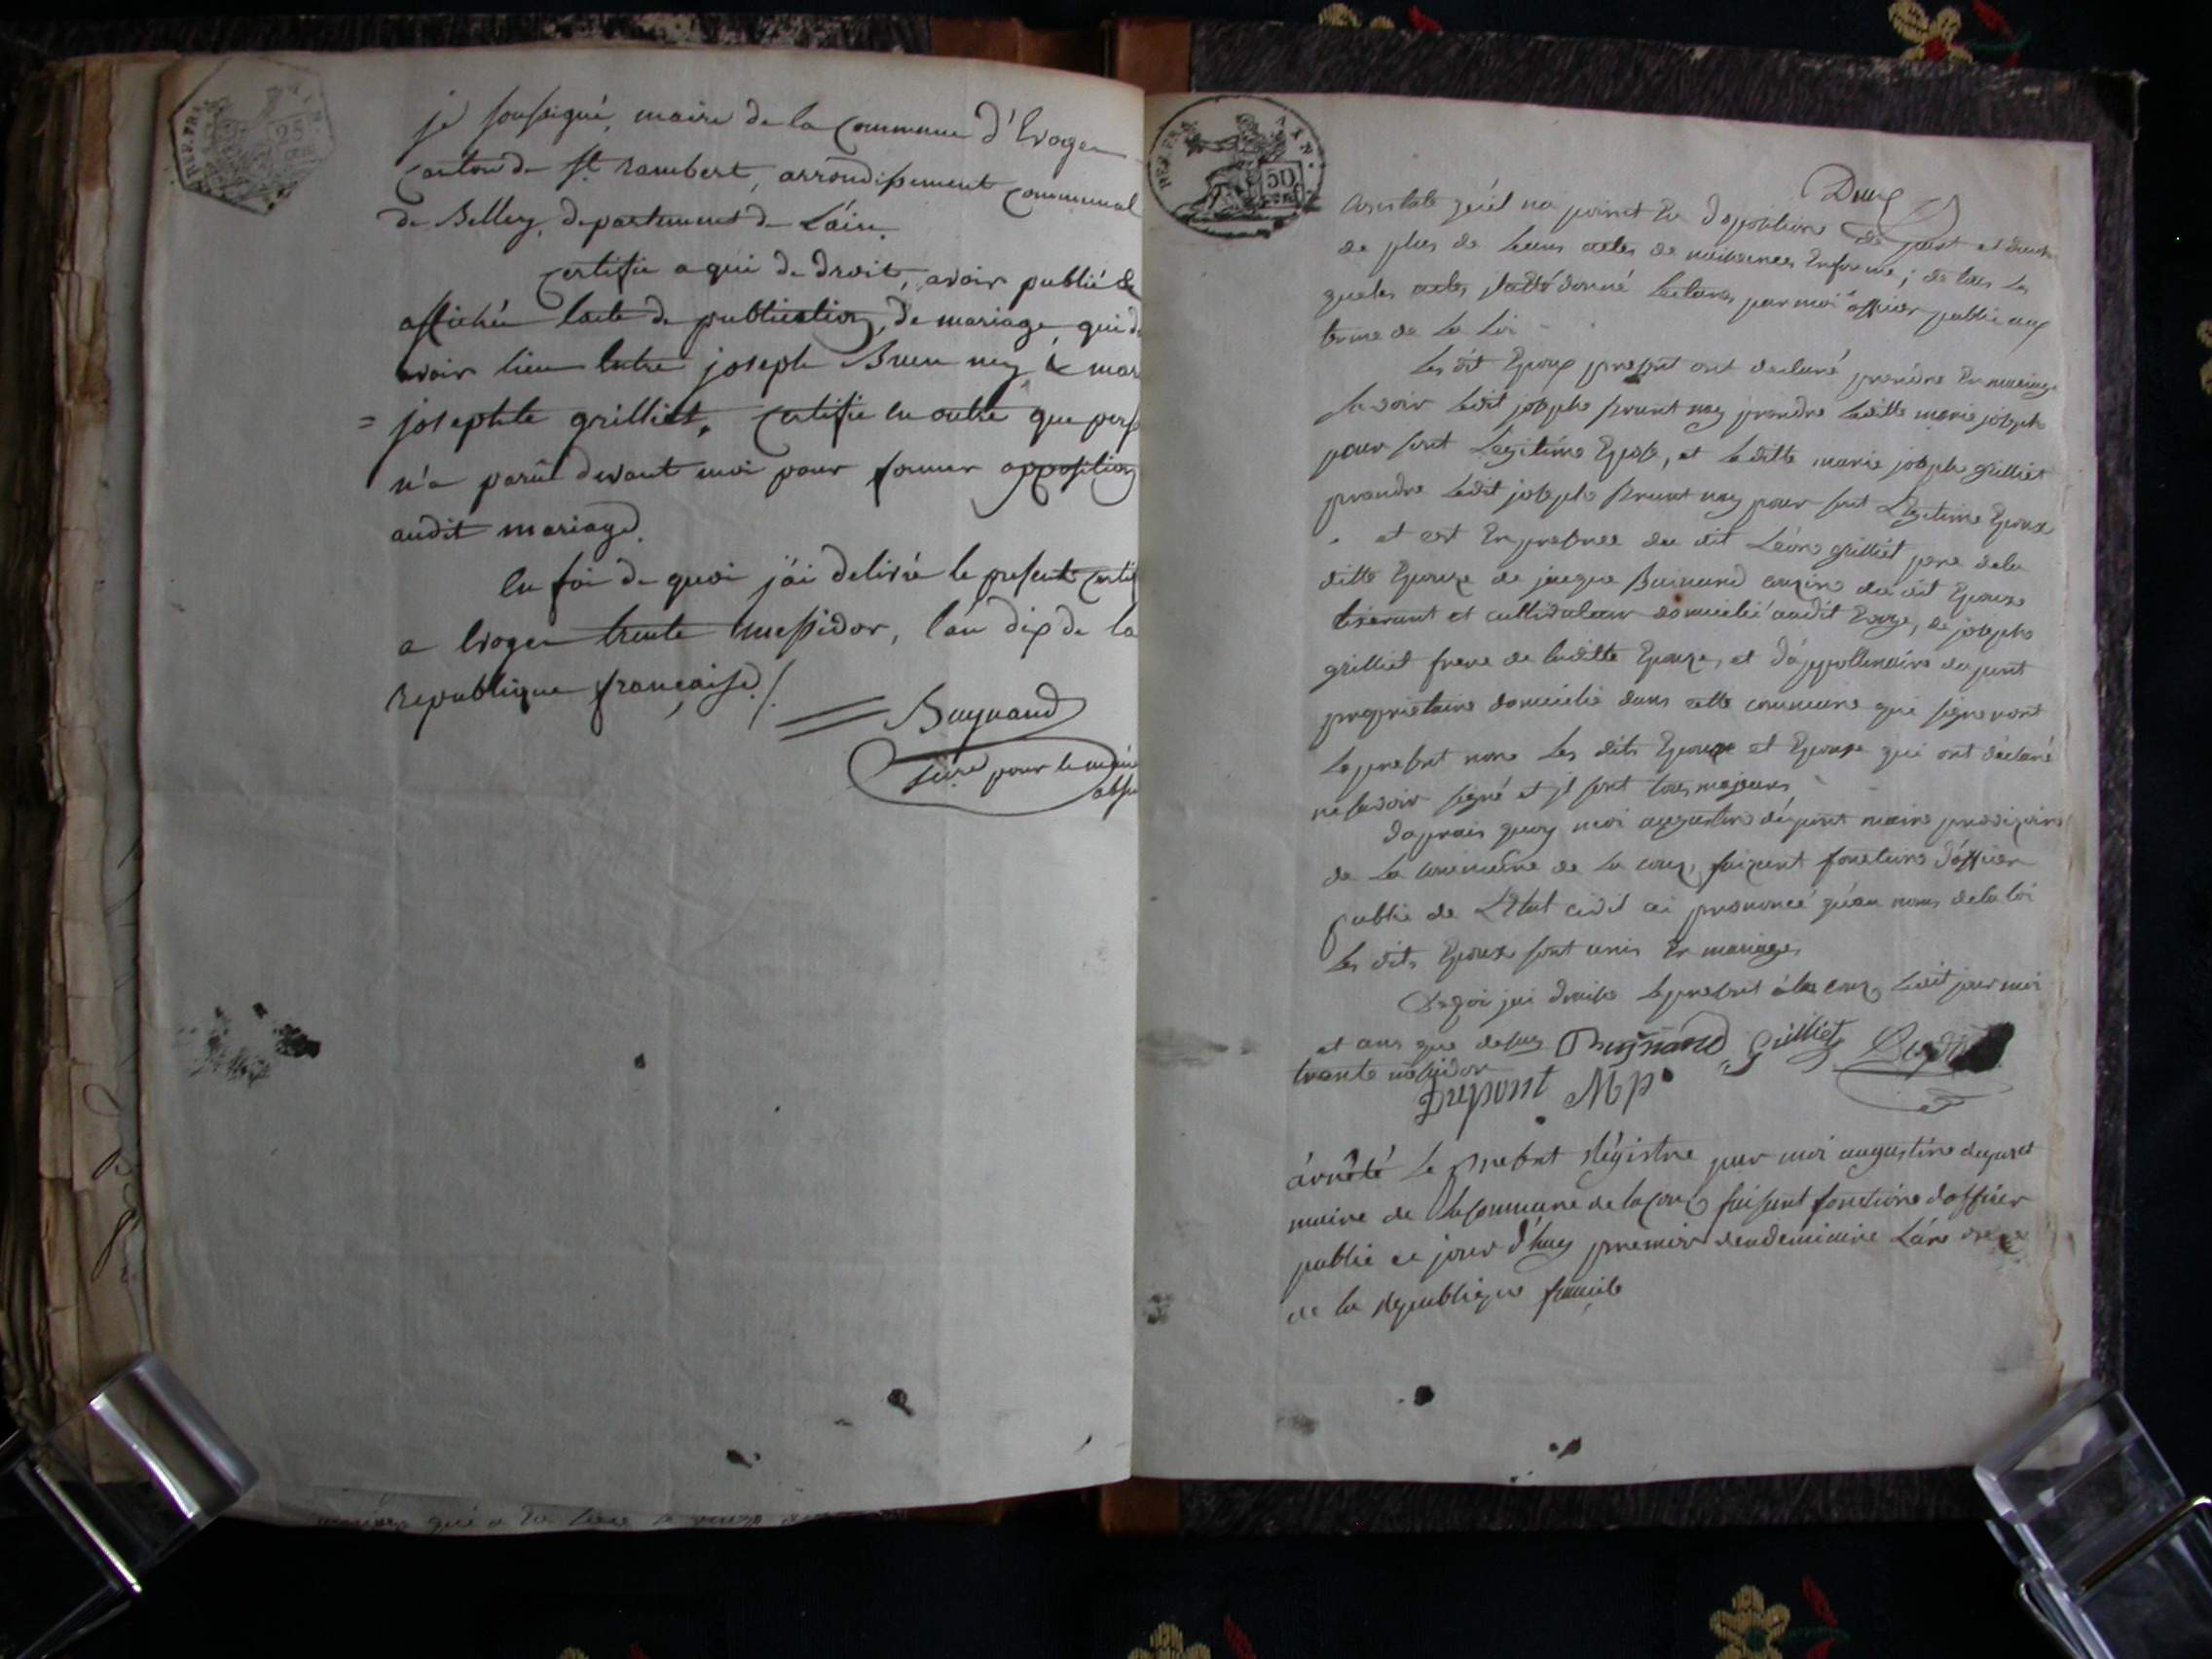 je soussigné, maire de la commune d'Evoges
canton de St rambert, arrondissement communal
de Belley, departement de L'ain.
certifie a qui de droit, avoir publié &
affiché lacte de publication, de mariage, qui d
avoir lieu entre joseph Brun ney & mar
= josephte grilliet, certifie en outre que pers
n'a parût devant moi pour former opposition
audit mariage.
en foi de quoi j'ai delivré le present certif
a Evoges trente messidor, l'an dix de la
republique française /.
Buynand
pour le maire
REP. FRA.
25
REP. FRA.
50
Deux
constate qu'il na point eu dopositions de part et dautre
de plus de leurs actes de naissances Enforme; de tous les
queles actes jlaété donné lecture par moi officier public aux
terme de la Loi
Les dit Epoux present ont declaré prendre En mariage
savoir ledit josephe brunt ney prendre laditte marie josephe
pour sont Legitime Epose, et laditte marie josephe grilliet
prendre ledit josephe brunt ney pour sont Legitime Epoux
et est En presence du dit Léons grilliet pere dela
ditte Epouze de jacque Buinand couzin du dit Epoux
tixerant et cultivateur domicilié audit Evoge, de josephe
grilliet frere de laditte Epouze, et d'appollinaire dupont
proprietaire domicilié dans cette commune qui signeront
Lepresent non Les dits Epoux et Epouse qui ont déclaré
ne savoir signé et jl sont tous majeurs
daprais quoy moi augustin dupont maire provizoire
de La commune de La coux, faizant fonctions d'officier
public de L'Etat civil ai prononcé qu'au nom dela loi
Les dits Epoux sont unis En mariage
De qoi jai draisé lepresent à la coux Ledit jour moi
et ans que desus Buynand Grilliet
trante mesidor
Dupont M p
árrêté Le present Régistre par moi augustine dupont
maire de la commune de la coux faisant fonctions dofficier
public ce jour d'huy premier vendemiaire L'an onze
de la republique francise